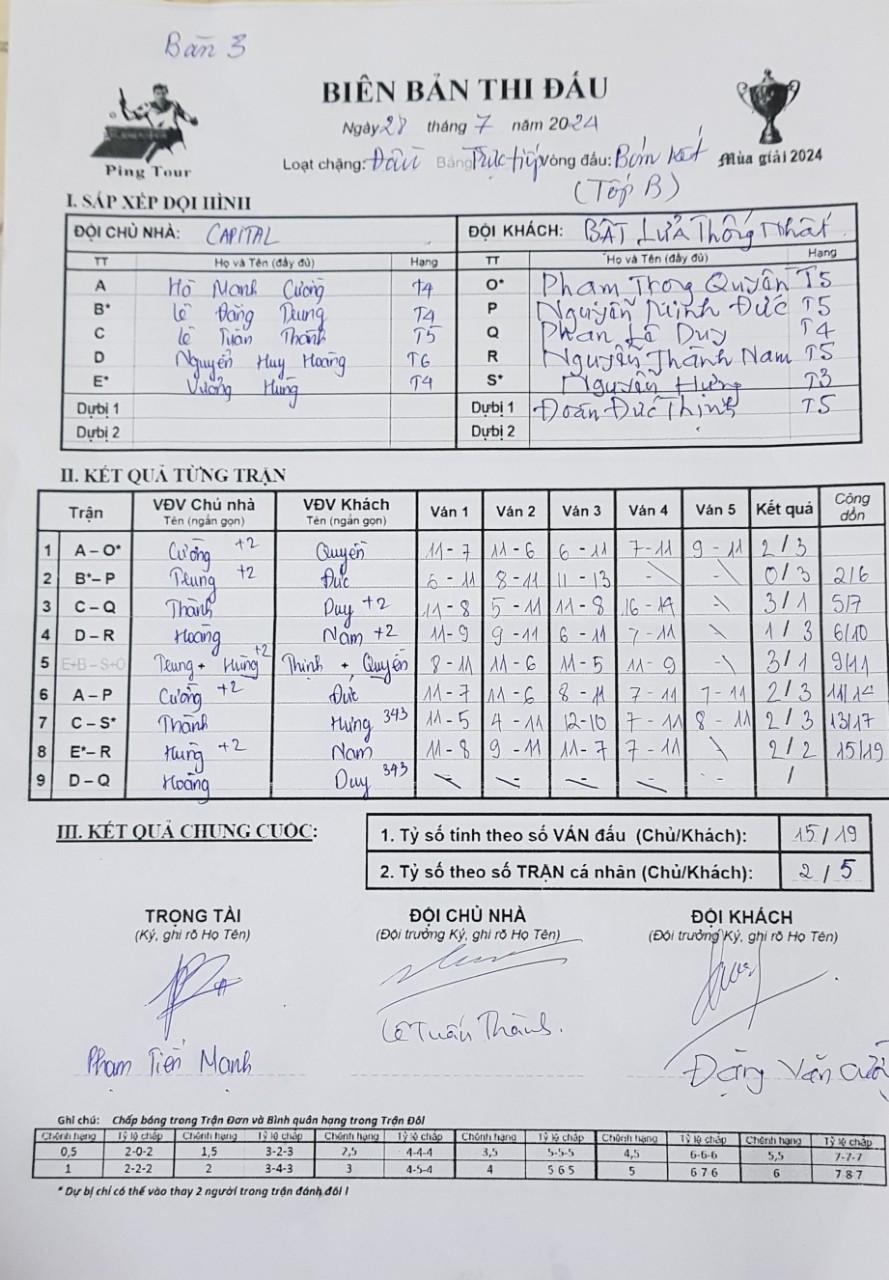 Bàn 3
BIÊN BẢN THI ĐẤU
Ngày 28 tháng 7 năm 2024
Ping Tour
Loạt chặng: Đấu Bảng Trực tiếp Vòng đấu: Bán kết
Mùa giải 2024
(Tốp B)
I. SẮP XẾP ĐỘI HÌNH
ĐỘI CHỦ NHÀ: CAPITAL ĐỘI KHÁCH: BẬT LỬA Thống Nhất
TT Họ và Tên (đầy đủ) Hạng TT Họ và Tên (đầy đủ) Hạng
A Hồ Mạnh Cường T4 O* Phạm Trọng Quyền T5
B* Lê Đăng Trung T4 P Nguyễn Minh Đức T5
C Lê Tuấn Thành T5 Q Phan Lê Duy T4
D Nguyễn Huy Hoàng T6 R Nguyễn Thành Nam T5
E* Vương Hùng T4 S* Nguyễn Hưng T3
Dự bị 1 Dự bị 1 Đoàn Đức Thịnh T5
Dự bị 2 Dự bị 2
II. KẾT QUẢ TỪNG TRẬN
Trận VĐV Chủ nhà Tên (ngắn gọn) VĐV Khách Tên (ngắn gọn) Ván 1 Ván 2 Ván 3 Ván 4 Ván 5 Kết quả Cộng dồn
1 A – O* Cường +2 Quyền 11 - 7 11 - 6 6 - 11 7 - 11 9 - 11 2 / 3
2 B* – P Trung +2 Đức 6 - 11 8 - 11 11 - 13 - - 0 / 3 2/6
3 C – Q Thành Duy +2 11 - 8 5 - 11 11 - 8 16 - 14 - 3 / 1 5/7
4 D – R Hoàng Nam +2 11 - 9 9 - 11 6 - 11 7 - 11 1 / 3 6/10
5 E+B – S+O Trung + Hùng +2 Thịnh + Quyền 8 - 11 11 - 6 11 - 5 11 - 9 - 3 / 1 9/11
6 A – P Cường +2 Đức 11 - 7 11 - 6 8 - 11 7 - 11 7 - 11 2 / 3 11/14
7 C – S* Thành Hưng 343 11 - 5 4 - 11 12 - 10 7 - 11 8 - 11 2 / 3 13/17
8 E* – R Hùng +2 Nam 11 - 8 9 - 11 11 - 7 7 - 11 2 / 2 15/19
9 D – Q Hoàng Duy 343 - - - - - /
III. KẾT QUẢ CHUNG CUỘC:
1. Tỷ số tính theo số VÁN đấu (Chủ/Khách): 15 / 19
2. Tỷ số theo số TRẬN cá nhân (Chủ/Khách): 2 / 5
TRỌNG TÀI ĐỘI CHỦ NHÀ ĐỘI KHÁCH
(Ký, ghi rõ Họ Tên) (Đội trưởng Ký, ghi rõ Họ Tên) (Đội trưởng Ký, ghi rõ Họ Tên)
Phạm Tiến Mạnh Lê Tuấn Thành. Đặng Văn
Ghi chú: Chấp bóng trong Trận Đơn và Bình quân hạng trong Trận Đôi
Chênh hạng Tỷ lệ chấp Chênh hạng Tỷ lệ chấp Chênh hạng Tỷ lệ chấp Chênh hạng Tỷ lệ chấp Chênh hạng Tỷ lệ chấp Chênh hạng Tỷ lệ chấp
0,5 2-0-2 1,5 3-2-3 2,5 4-4-4 3,5 5-5-5 4,5 6-6-6 5,5 7-7-7
1 2-2-2 2 3-4-3 3 4-5-4 4 5 6 5 5 6 7 6 6 7 8 7
* Dự bị chỉ có thể vào thay 2 người trong trận đánh đôi !